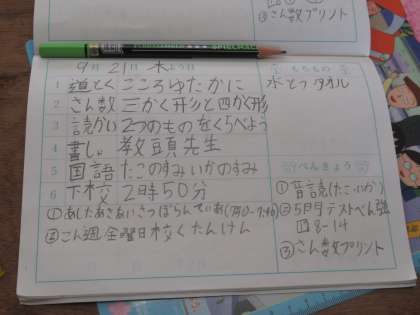 さん数プリント
9月21日木よう日
1 道とく こころゆたかに
2 さん数 三かく形と四かく形
3 読かい 2つのものをくらべよう
4 書し。 教頭先生
5 国語 たこのすみいかのすみ
6 下校 2時50分
①あしたあさあいさつぼらんてぃあ(7:30-7:40)
②こん週金曜日校くたんけん
もちもの
水とう タオル
べんきょう
①音読(たこ・いか)
②5月テストべん強
8-14
③さん数プリント